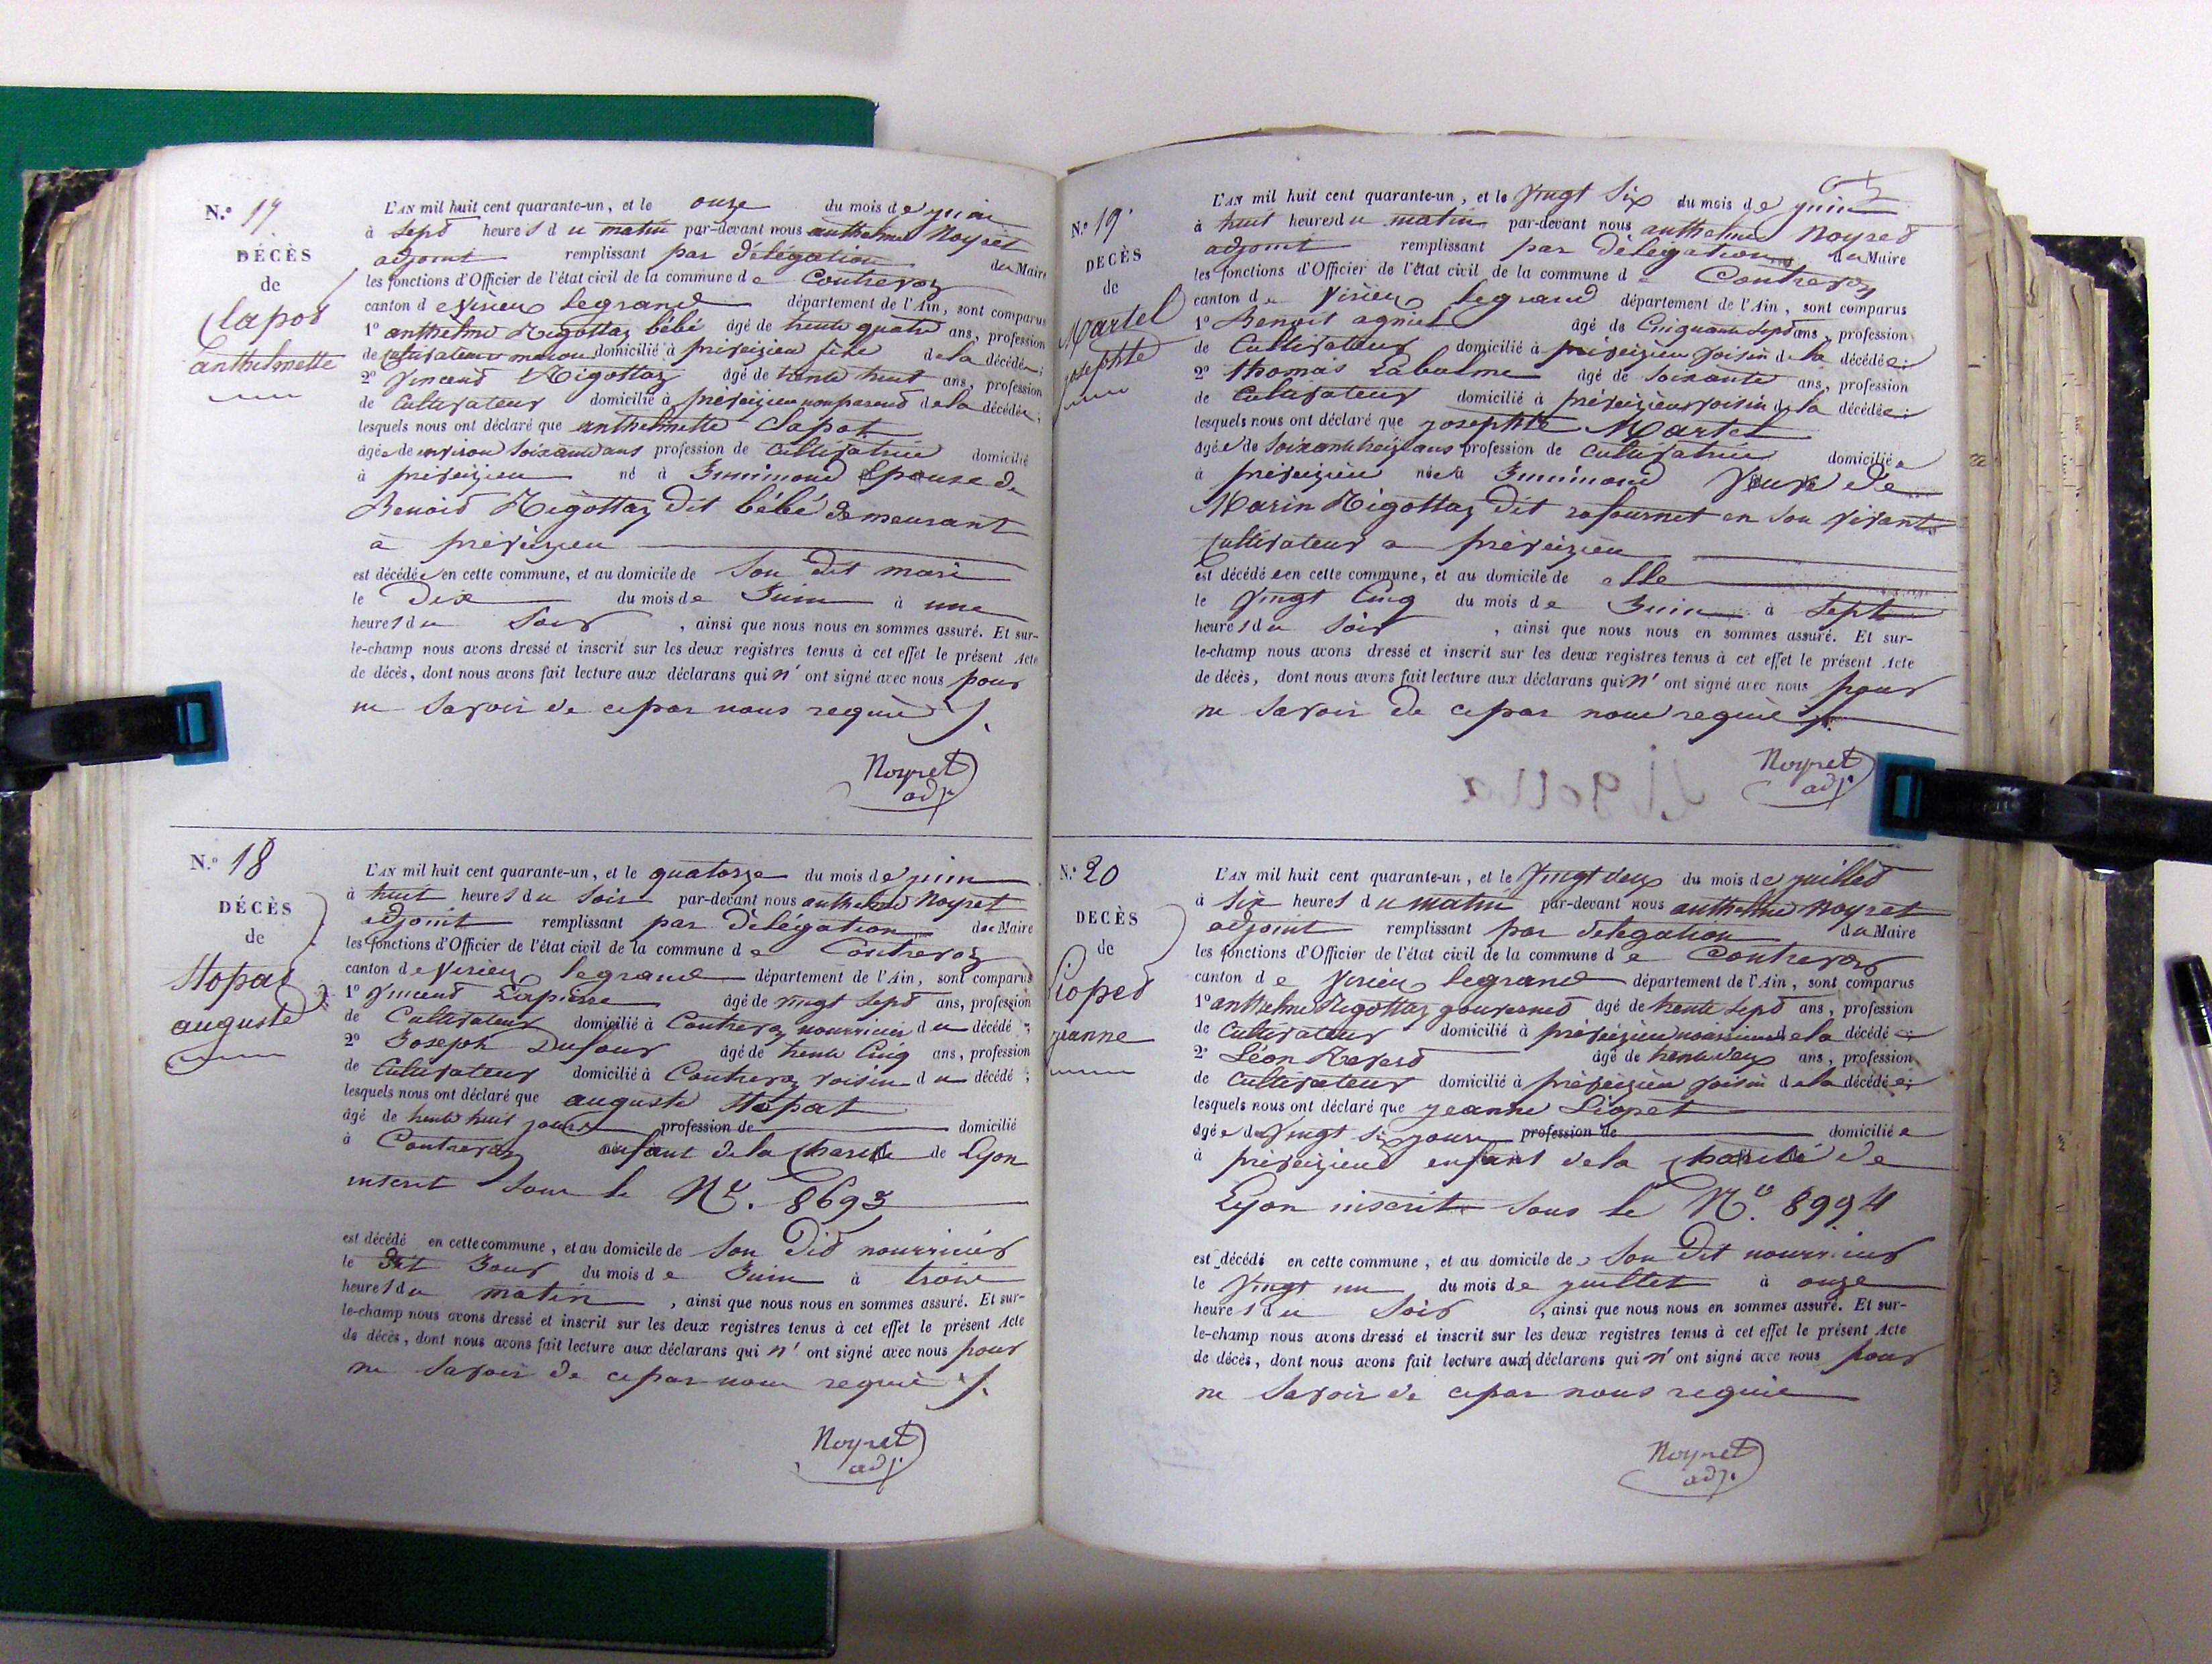 N.º 17
DÉCÈS
de
Clapot
anthelmette
L'AN mil huit cent quarante-un, et le onze du mois de juin
à Sept heures du matin par-devant nous anthelme Noyret
adjoint remplissant par délégation du Maire
les fonctions d'Officier de l'état civil de la commune de Contrevoz
canton de Virieu legrand département de l'Ain, sont comparus
1º anthelme Rigottaz bébé âgé de trente quatre ans, profession
de cultivateur domicilié à préveizieu de la décédée;
2º Vincend Rigottaz âgé de trente huit ans, profession
de Cultivateur domicilié à préveizieu non parend de la décédée;
lesquels nous ont déclaré que anthelmette Clapot
âgée de environ Soixante ans profession de Cultivatrice domicilié
à préveizieu né à Innimond Epouse de
Benoid Rigottaz dit bébé demeurant
à préveizieu
est décédée en cette commune, et au domicile de Son dit mari
le Dix du mois de Juin à une
heures du Soir, ainsi que nous nous en sommes assuré. Et sur-
le-champ nous avons dressé et inscrit sur les deux registres tenus à cet effet le présent Acte
de décès, dont nous avons fait lecture aux déclarans qui n' ont signé avec nous pour
ne Savoir de ce par nous requis
Noyret
adj.
N.º 18
DÉCÈS
de
Stopat
auguste
L'AN mil huit cent quarante-un, et le quatorze du mois de juin
à huit heures du Soir par-devant nous anthelme Noyret
adjoint remplissant par délégation du Maire
les fonctions d'Officier de l'état civil de la commune de Contrevoz
canton de Virieu legrand département de l'Ain, sont comparus
1º Vincend Lapierre âgé de vingt Sept ans, profession
de Cultivateur domicilié à Contrevoz nourricier du décédé;
2º Joseph Dufour âgé de trente Cinq ans, profession
de Cultivateur domicilié à Contrevoz voisin du décédé;
lesquels nous ont déclaré que auguste Stopat
âgé de trente huit jours profession de domicilié
à Contrevoz enfant de la Charité de Lyon
inscrit Sous le Nº. 8693
est décédé en cette commune, et au domicile de Son did nourricier
le dit Jour du mois de Juin à trois
heures du matin, ainsi que nous nous en sommes assuré. Et sur-
le-champ nous avons dressé et inscrit sur les deux registres tenus à cet effet le présent Acte
de décès, dont nous avons fait lecture aux déclarans qui n' ont signé avec nous pour
ne Savoir de ce par nous requis
Noyret
adj.
N.º 19
DÉCÈS
de
Martel
josephte
L'AN mil huit cent quarante-un, et le Vingt Six du mois de juin
à huit heures du matin par-devant nous anthelme Noyret
adjoint remplissant par Délégation du Maire
les fonctions d'Officier de l'état civil de la commune de Contrevoz
canton de Virieu legrand département de l'Ain, sont comparus
1º Benoit agniel âgé de Cinquante Sept ans, profession
de Cultivateur domicilié à préveizieu voisin de la décédée;
2º thomas Labalme âgé de Soixante ans, profession
de Cultivateur domicilié à préveizieu voisin de la décédée;
lesquels nous ont déclaré que josephte Martel
âgée de Soixante treize ans profession de Cultivatrice domiciliée
à préveizieu née à Innimond Veuve de
Marin Rigottaz dit rafournet en Son vivant
Cultivateur a préveizieu
est décédée en cette commune, et au domicile de elle
le Vingt Cinq du mois de Juin à Sept
heures du Soir, ainsi que nous nous en sommes assuré. Et sur-
le-champ nous avons dressé et inscrit sur les deux registres tenus à cet effet le présent Acte
de décès, dont nous avons fait lecture aux déclarans qui n' ont signé avec nous pour
ne Savoir de ce par nous requis
Noyret
adj.
N.º 20
DÉCÈS
de
Liopet
jeanne
L'AN mil huit cent quarante-un, et le Vingt deux du mois de juillet
à Six heures du matin par-devant nous anthelme Noyret
adjoint remplissant par délégation du Maire
les fonctions d'Officier de l'état civil de la commune de Contrevoz
canton de Virieu legrand département de l'Ain, sont comparus
1º anthelme Rigottaz gouvernet âgé de trente Sept ans, profession
de Cultivateur domicilié à préveizieu nourricier de la décédée;
2º Léon Travert âgé de trente deux ans, profession
de Cultivateur domicilié à préveizieu voisin de la décédée;
lesquels nous ont déclaré que jeanne Liopet
âgée de Vingt Six jours profession de domiciliée
à préveizieu enfant de la charité de
Lyon inscrite Sous le Nº. 8994
est décédé en cette commune, et au domicile de Son dit nourricier
le Vingt un du mois de juillet à onze
heures du Soir, ainsi que nous nous en sommes assuré. Et sur-
le-champ nous avons dressé et inscrit sur les deux registres tenus à cet effet le présent Acte
de décès, dont nous avons fait lecture aux déclarans qui n' ont signé avec nous pour
ne Savoir de ce par nous requis
Noyret
adj.